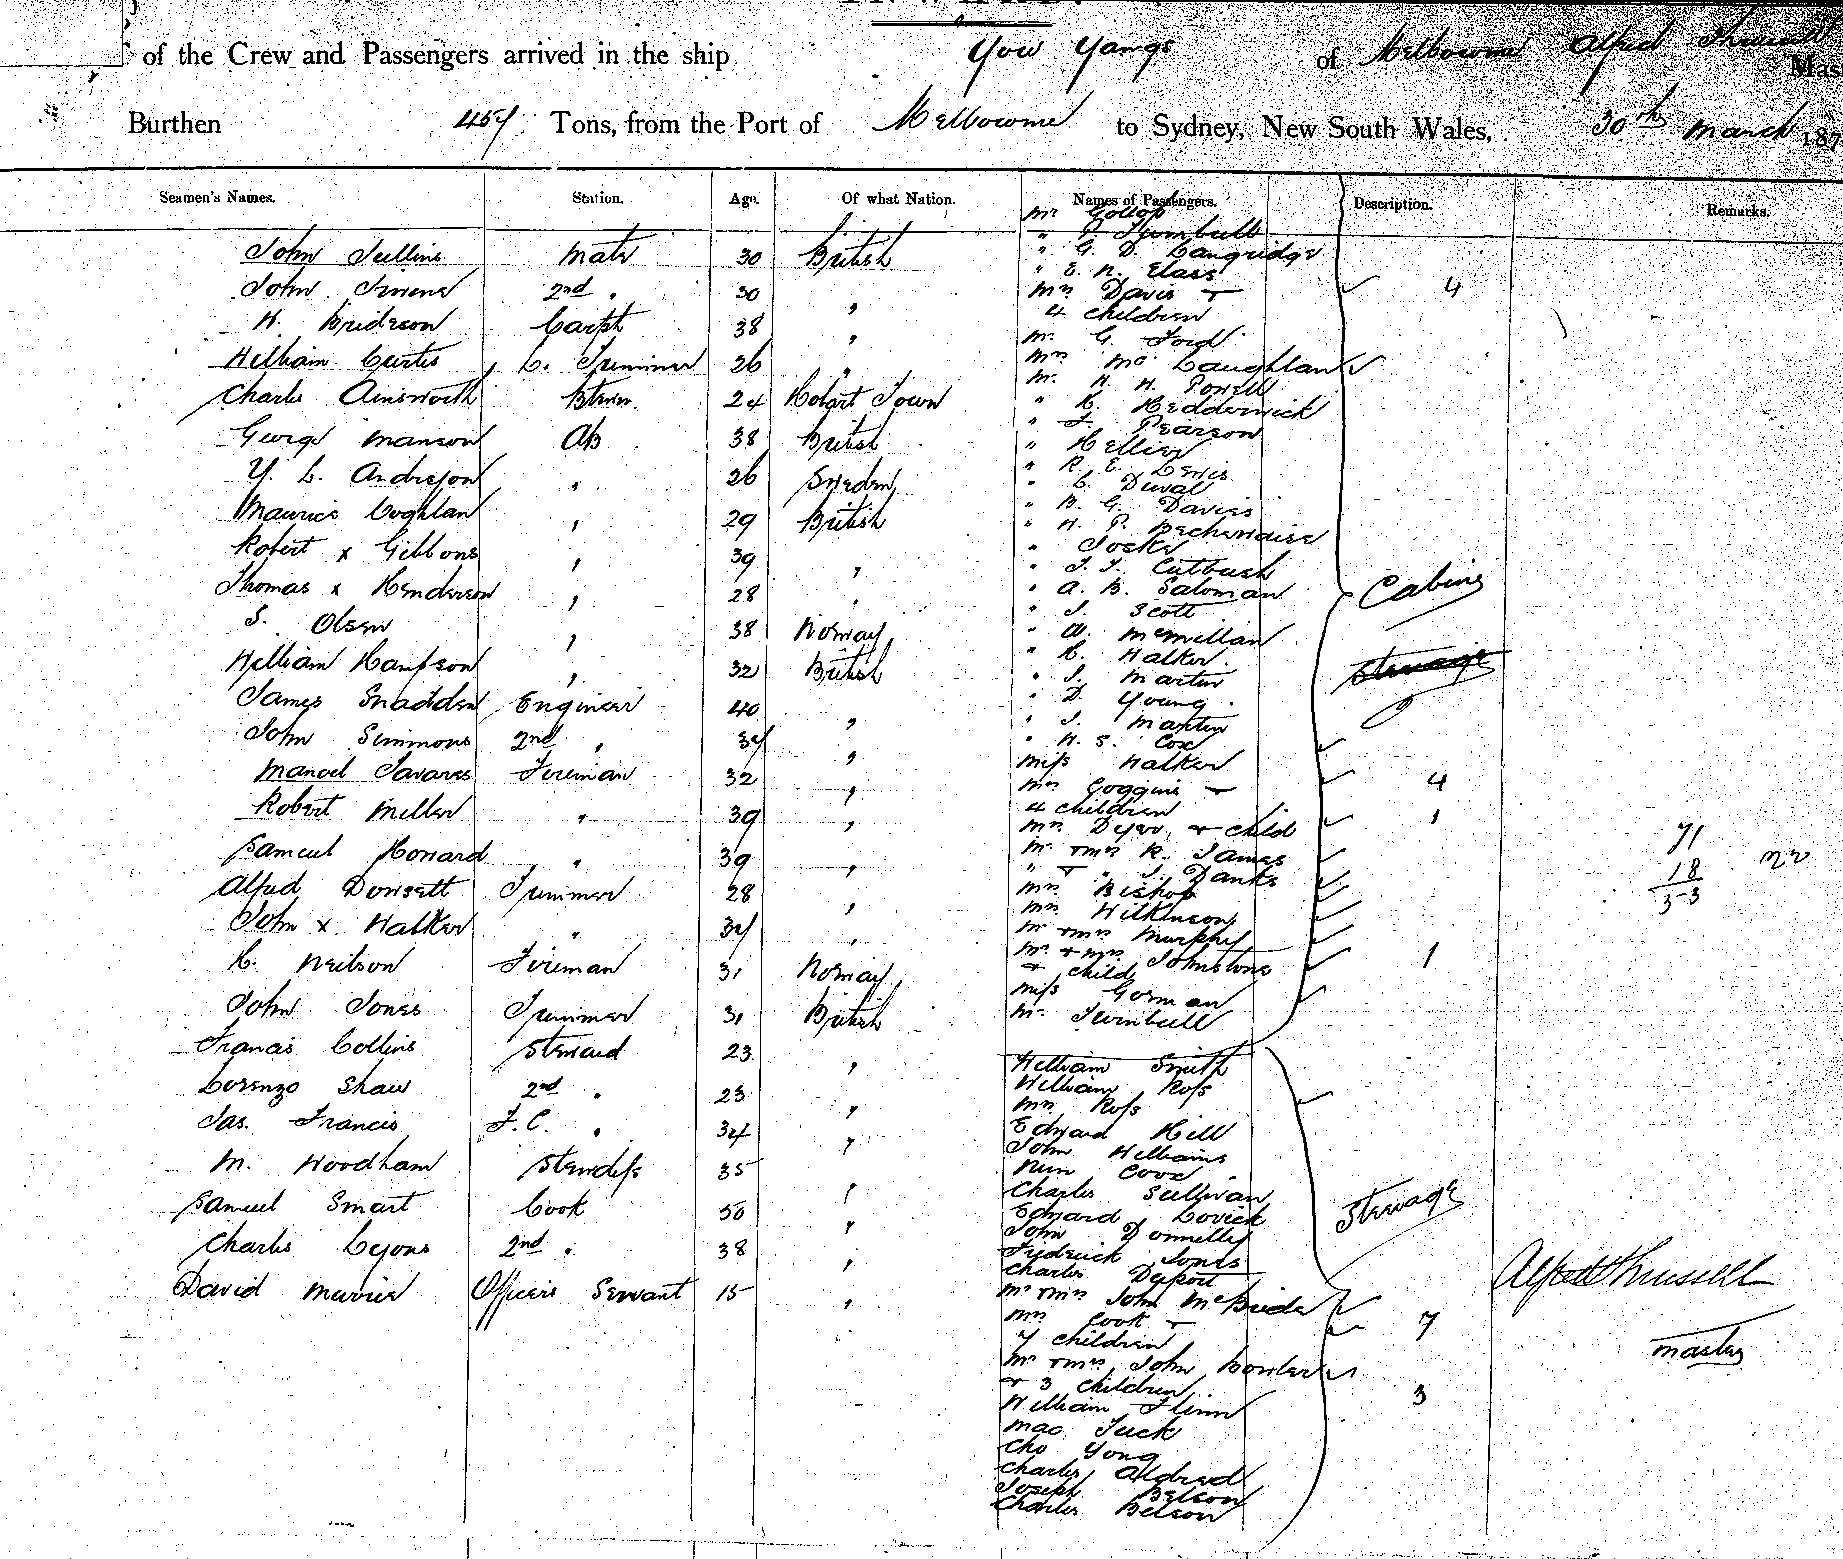 of the Crew and Passengers arrived in the ship You Yangs of Melbourne Alfred Mas
Burthen 457 Tons, from the Port of Melbourne to Sydney, New South Wales, 30th March 187
Seamen's Names. Station. Age. Of what Nation. Names of Passengers. Description. Remarks.
John Mate 30 British
John 2nd " 30 "
H. Brideson Carptr 38 "
William Curtis L. Trimmer 26 "
Charles Ainsworth 24 Hobart Town
George Manson AB 38 British
L. " 26 Sweden
Maurice Coghlan " 29 British
Robert x Gibbons " 39 "
Thomas x Henderson " 28 "
S. Olsen " 38 Norway
William Hampson " 32 British
James Snadden Engineer 40 "
John Simmons 2nd " 37 "
Manoel Tavares Fireman 32 "
Robert Miller " 39 "
Samuel Howard " 39 "
Alfred Dowsett Trimmer 28 "
John x Walker " 34 "
H. Neilson Fireman 31 Norway
John Jones Trimmer 31 British
Francis Collins Steward 23 "
Lorenzo Shaw 2nd " 23 "
Jas. Francis F.C. " 34 "
M. Woodham Stewdess 35 "
Samuel Smart Cook 50 "
Charles Lyons 2nd " 38 "
David Officers Servant 15 "
Mr Gollop
" Turnbull
" G. D. Langridge
" E. N.
Mrs Davis +
4 children 4
Mr G. Ford
Mrs McLaughlan
Mr H. H. Powell
" H. Hedderwick
" J. Pearson
" Hellier
" R. E. Lewis
" C. Duval
" B. G. Davies
" H. P. Bechervaise
"
" J. J. Cutbush
" A. B. Saloman
" J. Scott
" A. McMillan
" H. Walker
" J. Martin
" D. Young
" J. Martin
" H. S. Cox
Miss Walker
Mrs Goggins +
4 children 4
Mrs Dyer + child 1
Mr + Mrs R. James
" + " J. Danks
Mrs Bishop
Mrs Wilkinson
Mr + Mrs Murphy
Mr + Mrs Johnstone
+ child 1
Miss Gorman
Mr Turnbull
Cabin
Steerage
William Smith
William Ross
Mrs Ross
Edward Hill
John Williams
Charles Sullivan
Edward Lovick
John Donnelly
Fredrick Jones
Charles
Mr + Mrs John McBride
Mrs Cook +
7 children 7
Mr + Mrs John Bowler
+ 3 children 3
William Flinn
Mao Tuck
Cho Yong
Charles Aldred
Joseph Belson
Charles Belson
Steerage
71
18
53
Master